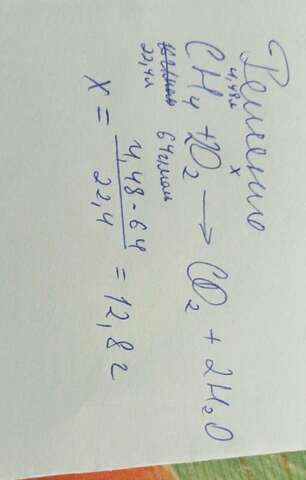 Решение
4,48л x
CH₄ + 2O₂ → CO₂ + 2H₂O
22,4л 64г/моль
x = 4,48 · 64 / 22,4 = 12,8 г